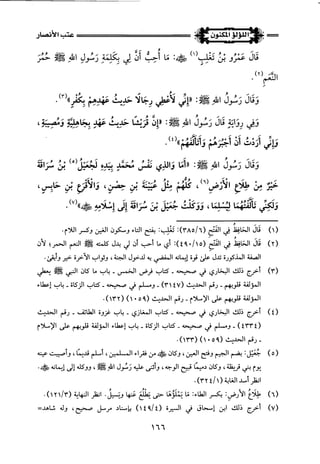 اللؤلؤ المكنون
عتب الأنصار
قَالَ عَمْرُو بْنُ تَغْلِبَ(١) ﷺ: مَا أُحِبُّ أَنَّ لِي بِكَلِمَةِ رَسُولِ اللهِ ﷺ حُمْرَ
النَّعَمِ(٢).
وَقَالَ رَسُولُ اللهِ ﷺ: «إِنِّي لَأُعْطِي رِجَالًا حَدِيثٌ عَهْدُهُمْ بِكُفْرٍ»(٣).
وَفِي رِوَايَةٍ قَالَ رَسُولُ اللهِ ﷺ: «إِنَّ قُرَيْشًا حَدِيثُ عَهْدٍ بِجَاهِلِيَّةٍ وَمُصِيبَةٍ،
وَإِنِّي أَرَدْتُ أَنْ أَجْبُرَهُمْ وَأَتَأَلَّفَهُمْ»(٤).
وَقَالَ رَسُولُ اللهِ ﷺ: «أَمَا وَالَّذِي نَفْسُ مُحَمَّدٍ بِيَدِهِ لَجُعَيْلُ(٥) بْنُ سُرَاقَةَ
خَيْرٌ مِنْ طِلَاعِ الْأَرْضِ(٦)، كُلُّهُمْ مِثْلُ عُيَيْنَةَ بْنِ حِصْنٍ، وَالْأَقْرَعِ بْنِ حَابِسٍ،
وَلَكِنِّي تَأَلَّفْتُهُمَا لِيُسْلِمَا، وَوَكَلْتُ جُعَيْلَ بْنَ سُرَاقَةَ إِلَى إِسْلَامِهِ»(٧).
(١) قَالَ الحَافِظُ في الفَتْحِ (٣٨٥/٦): تَغْلِب: بفتح التاء وسكون الغين وكسر اللام.
(٢) قَالَ الحَافِظُ في الفَتْحِ (٤٩٠/١٥): أي ما أحب أن لي بدل كلمته ﷺ النعم الحمر؛ لأن
الصفة المذكورة تدل على قوة إيمانه المفضي به لدخول الجنة، وثواب الآخرة خير وأبقى.
(٣) أخرج ذلك البخاري في صحيحه - كتاب فرض الخمس - باب ما كان النبي ﷺ يعطي
المؤلفة قلوبهم - رقم الحديث (٣١٤٧) - ومسلم في صحيحه - كتاب الزكاة - باب إعطاء
المؤلفة قلوبهم على الإسلام - رقم الحديث (١٠٥٩) (١٣٢).
(٤) أخرج ذلك البخاري في صحيحه - كتاب المغازي - باب غزوة الطائف - رقم الحديث
(٤٣٣٤) - ومسلم في صحيحه - كتاب الزكاة - باب إعطاء المؤلفة قلوبهم على الإسلام
- رقم الحديث (١٠٥٩) (١٣٣).
(٥) جُعَيْل: بضم الجيم وفتح العين، وكان ﷺ من فقراء المسلمين، أسلم قديمًا، وأصيبت عينه
يوم بني قريظة، وكان دميمًا قبيح الوجه، وأثنى عليه رسول الله ﷺ، ووكله إلى إيمانه.
انظر أسد الغابة (٣٢٤/١).
(٦) طِلَاع الأرض: بكسر الطاء: ما يملؤها حتى يطلع عنها ويسيل. انظر النهاية (١٢١/٣).
(٧) أخرج ذلك ابن إسحاق في السيرة (١٤٩/٤) بإسناد مرسل صحيح، وله شاهد=
١٦٦